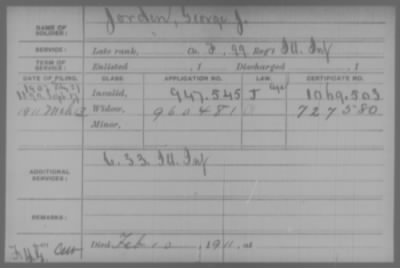 Jorden, George J.
NAME OF SOLDIER:
SERVICE: Late rank, Co. F, 99 Reg't Ill. Inf
TERM OF SERVICE: Enlisted , 1 Discharged , 1
DATE OF FILING. CLASS. APPLICATION NO. LAW. CERTIFICATE NO.
Invalid, 947.545 J 1069.503
1911 Mch Widow, 960481 727580
Minor,
C. 33 Ill. Inf
ADDITIONAL SERVICES:
REMARKS:
Died Feb 10, 1911, at